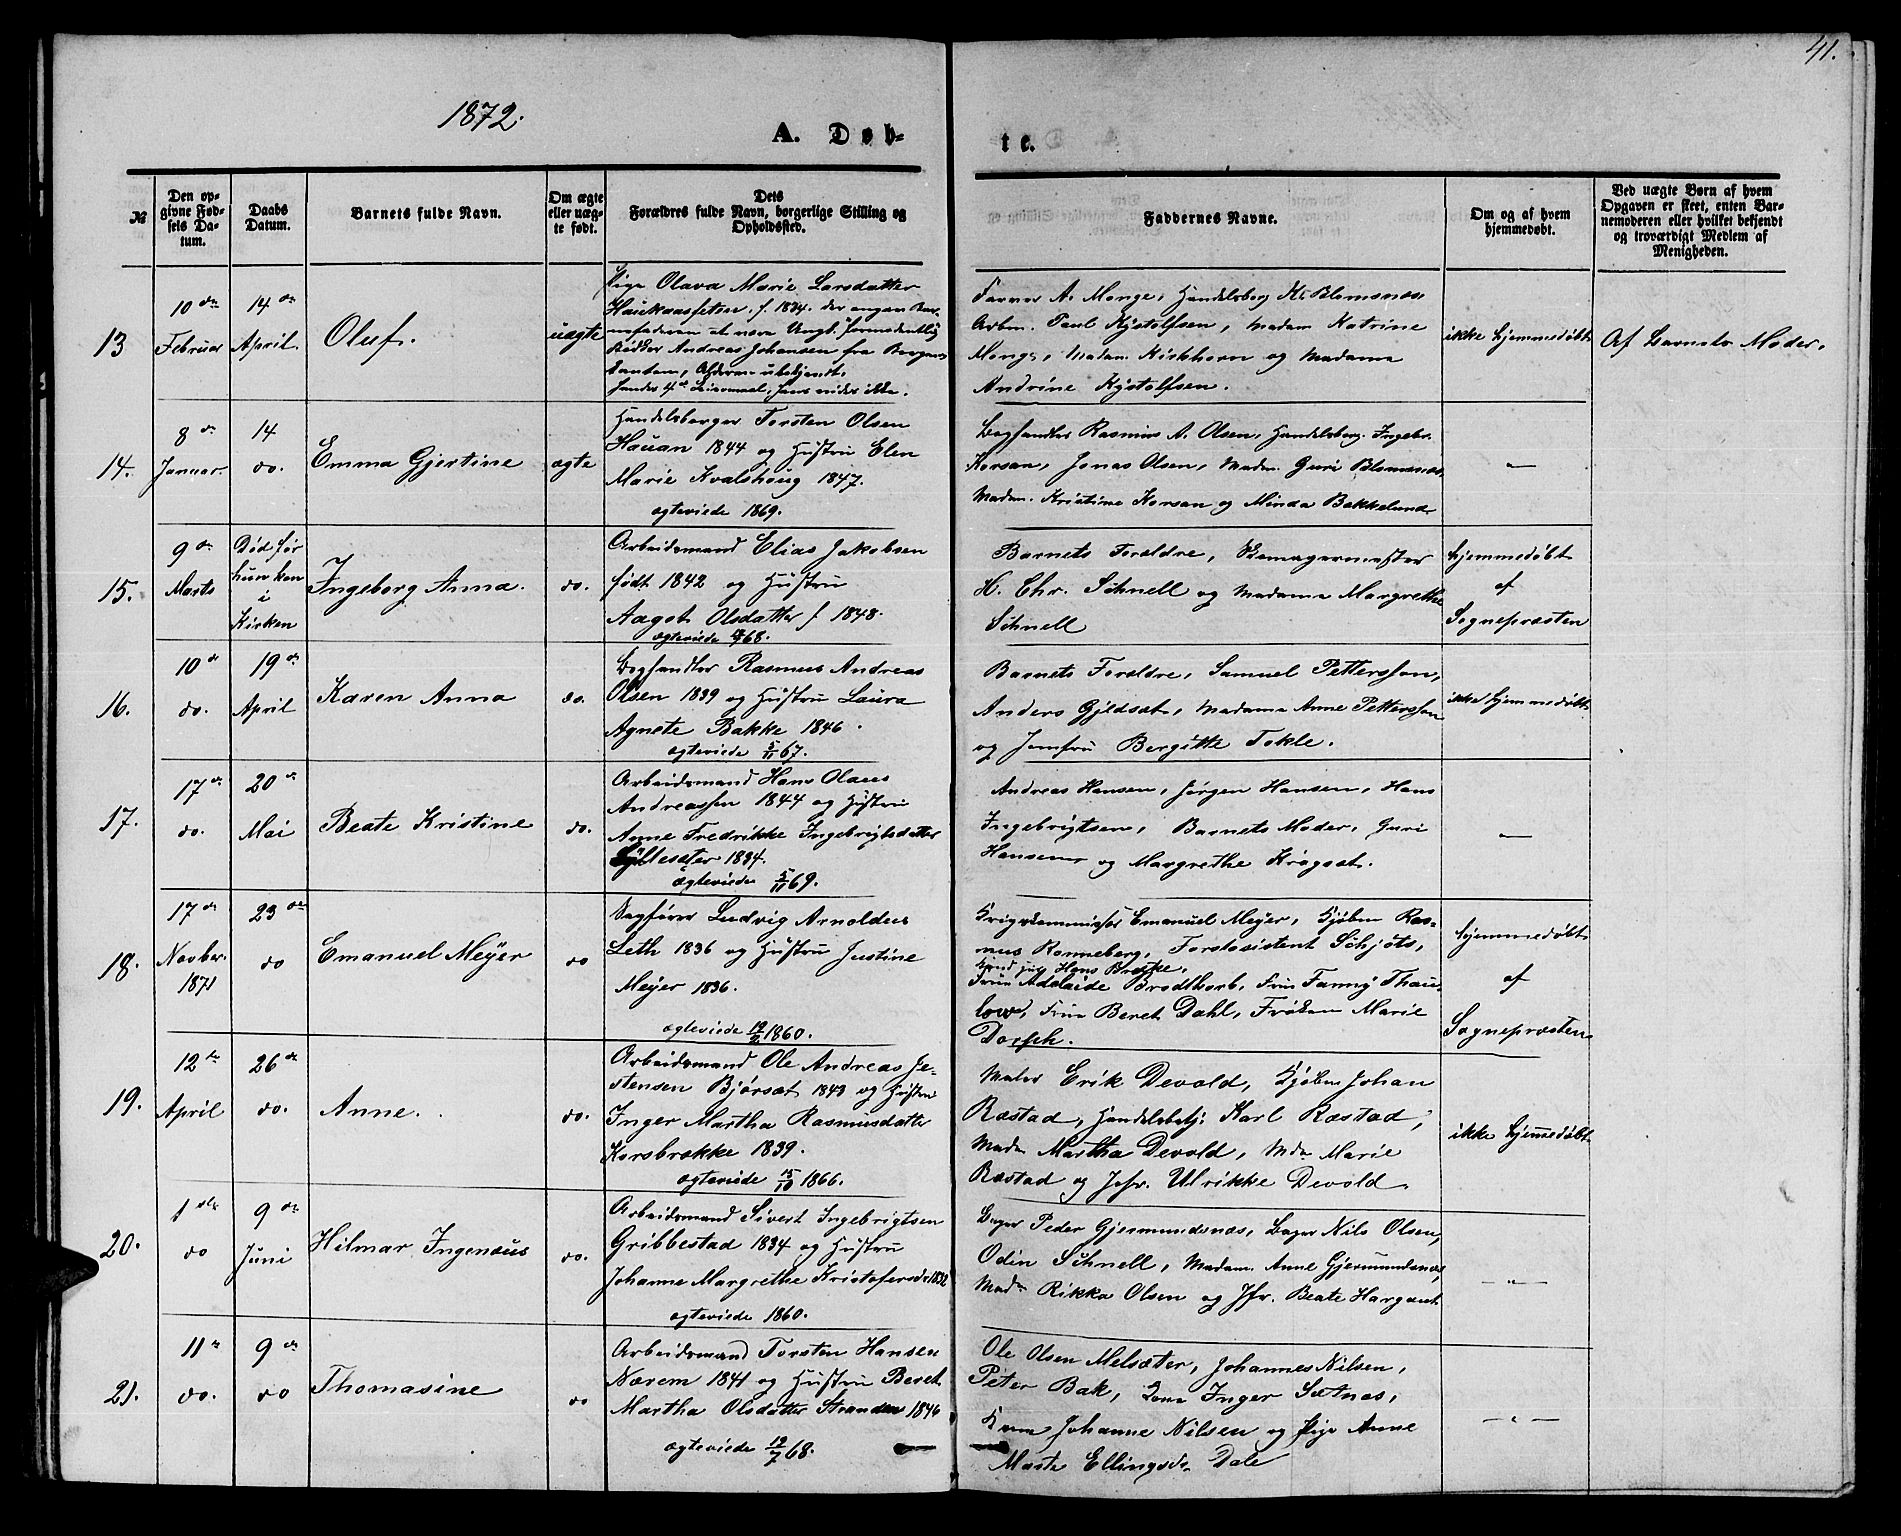 41.
1872.
A. Døb-
te.
№
Den op-
givne Fød-
sels Da-
tum.
Daabs
Datum.
Barnets fulde Navn.
Om ægte
eller uæg-
te født.
Dets
Forældres fulde Navn, borgerlige Stilling og
Opholdssted.
Faddernes Navne.
Om og af hvem
hjemmedøbt.
Ved uægte Børn af hvem
Opgaven er skeet, enten Bar-
nemoderen eller hvilket bekjendt
og troværdigt Medlem af
Menigheden.
13
10 de
Februar
14 de
April
Oluf.
uægte
Pige Olava Marie Larsdatter
f. 1834. der angav Bar-
nefaderen at være Ungk.
Andreas Johansen fra Bergen
Alderen ubekjendt.
Hendes 4de Leiermaal, hans vides ikke.
A. Monge, Handelsborg. K. Blomsnæs
Arbm. Paul Kystolfsen, Madam Katrine
Monge, Madam Kirkhorn og Madame
Andrine Kystolfsen.
ikke hjemmedøbt
Af Barnets Moder.
14.
8 de
Januar
14
do.
Emma Gjertine
ægte
Handelsborger Torsten Olsen
Hauan 1844 og Hustru Elen
Marie Kvalshoug 1847.
ægteviede 1869.
Boghandler Rasmus A. Olsen, Handelsborg. Ingebr.
Korsan, Jonas Olsen, Madm. Guri Blomsnæs,
Madm. Kristine Korsan og Minda Bakkelund
"
15.
9 de
Marts
Død før
hun kom
i
Kirken
Ingeborg Anna.
do.
Arbeidsmand Elias Jakobsen
født 1842 og Hustru
Aagot Olsdatter f 1848.
ægteviede 68.
Barnets Forældre,
H. Chr. Schnell og Madame Margrethe
Schnell
hjemmedøbt
af
Sognepræsten
16.
10 de
do.
19 de
April
Karen Anna
do.
Boghandler Rasmus Andreas
Olsen 1839 og Hustru Laura
Agnete Bakke 1846.
ægteviede 5/11 67.
Barnets Forældre, Samuel Pettersson,
Anders Gjeldsæt, Madame Anne Pettersson
og Jomfru Bergitte Tokle.
ikke hjemmedøbt
17.
17 de
do.
20 de
Mai
Beate Kristine
do.
Arbeidsmand Hans Olaus
Andreassen 1844 og Hustru
Anne Fredrikke Ingebrigtsdatter
Syltesæter 1834.
ægteviede 5/11 69.
Andreas Hansen, Jørgen Hansen, Hans
Ingebrigtsen, Barnets Moder, Guri
Hansen og Margrethe Krogsæt.
"
18.
17 de
Novber
1871
23 de
do
Emanuel Meÿer
do
Sagfører Ludvig Arnoldus
Leth 1836 og Hustru Justine
Meÿer 1836.
ægteviede 1860.
Krigskommissær Emanuel Meÿer, Kjøbm Ras-
mus Rønneberg, Forstasistent Schjøts,
Hans Brække,
Fru Adelaide Brodtkorb, Frue Fanny Thau-
low, Frue Beret Dahl, Frøken Marie
Dorph.
hjemmedøbt
af
Sognepræsten
19.
12 te
April
26 de
do.
Anne.
do.
Arbeidsmand Ole Andreas Je-
stensen Bjørsæt 1843 og Hustru
Inger Martha Rasmusdatter
Korsbrække 1839.
ægteviede 15/10 1866.
Maler Erik Devold, Kjøbm Johan
Ræstad, Handelsbetj. Karl Ræstad,
Madm Martha Devold, Mdm Marie
Ræstad og Jofr. Ulrikke Devold.
ikke hjemmedøbt
20.
1 ste
do
9 de
Juni
Hilmar Ingenæus
do.
Arbeidsmand Sivert Ingebrigtsen
Gribbestad 1834 og Hustru
Johanne Margrethe Kristofersdr 1832
ægteviede 1860.
Bager Peder Gjermundsnæs, Bager Nils Olsen,
Odin Schnell, Madam. Anne Gjermundsnæs,
Madm Rikka Olsen og Jfr. Beate Hargaut
"
21.
11 te
do.
9 de
do
Thomasine
do
Arbeidsmand Torsten Hansen
Nærem 1841 og Hustru Beret
Martha Olsdatter Stranden 1846
ægteviede 19/7 68.
Ole Olsen Melsæter, Johannes Nilsen,
Peter Bak, Kone Inger Sætnæs,
Kone Johanne Nilsen og Pige Anne
Marte Ellingsdr Dale
"